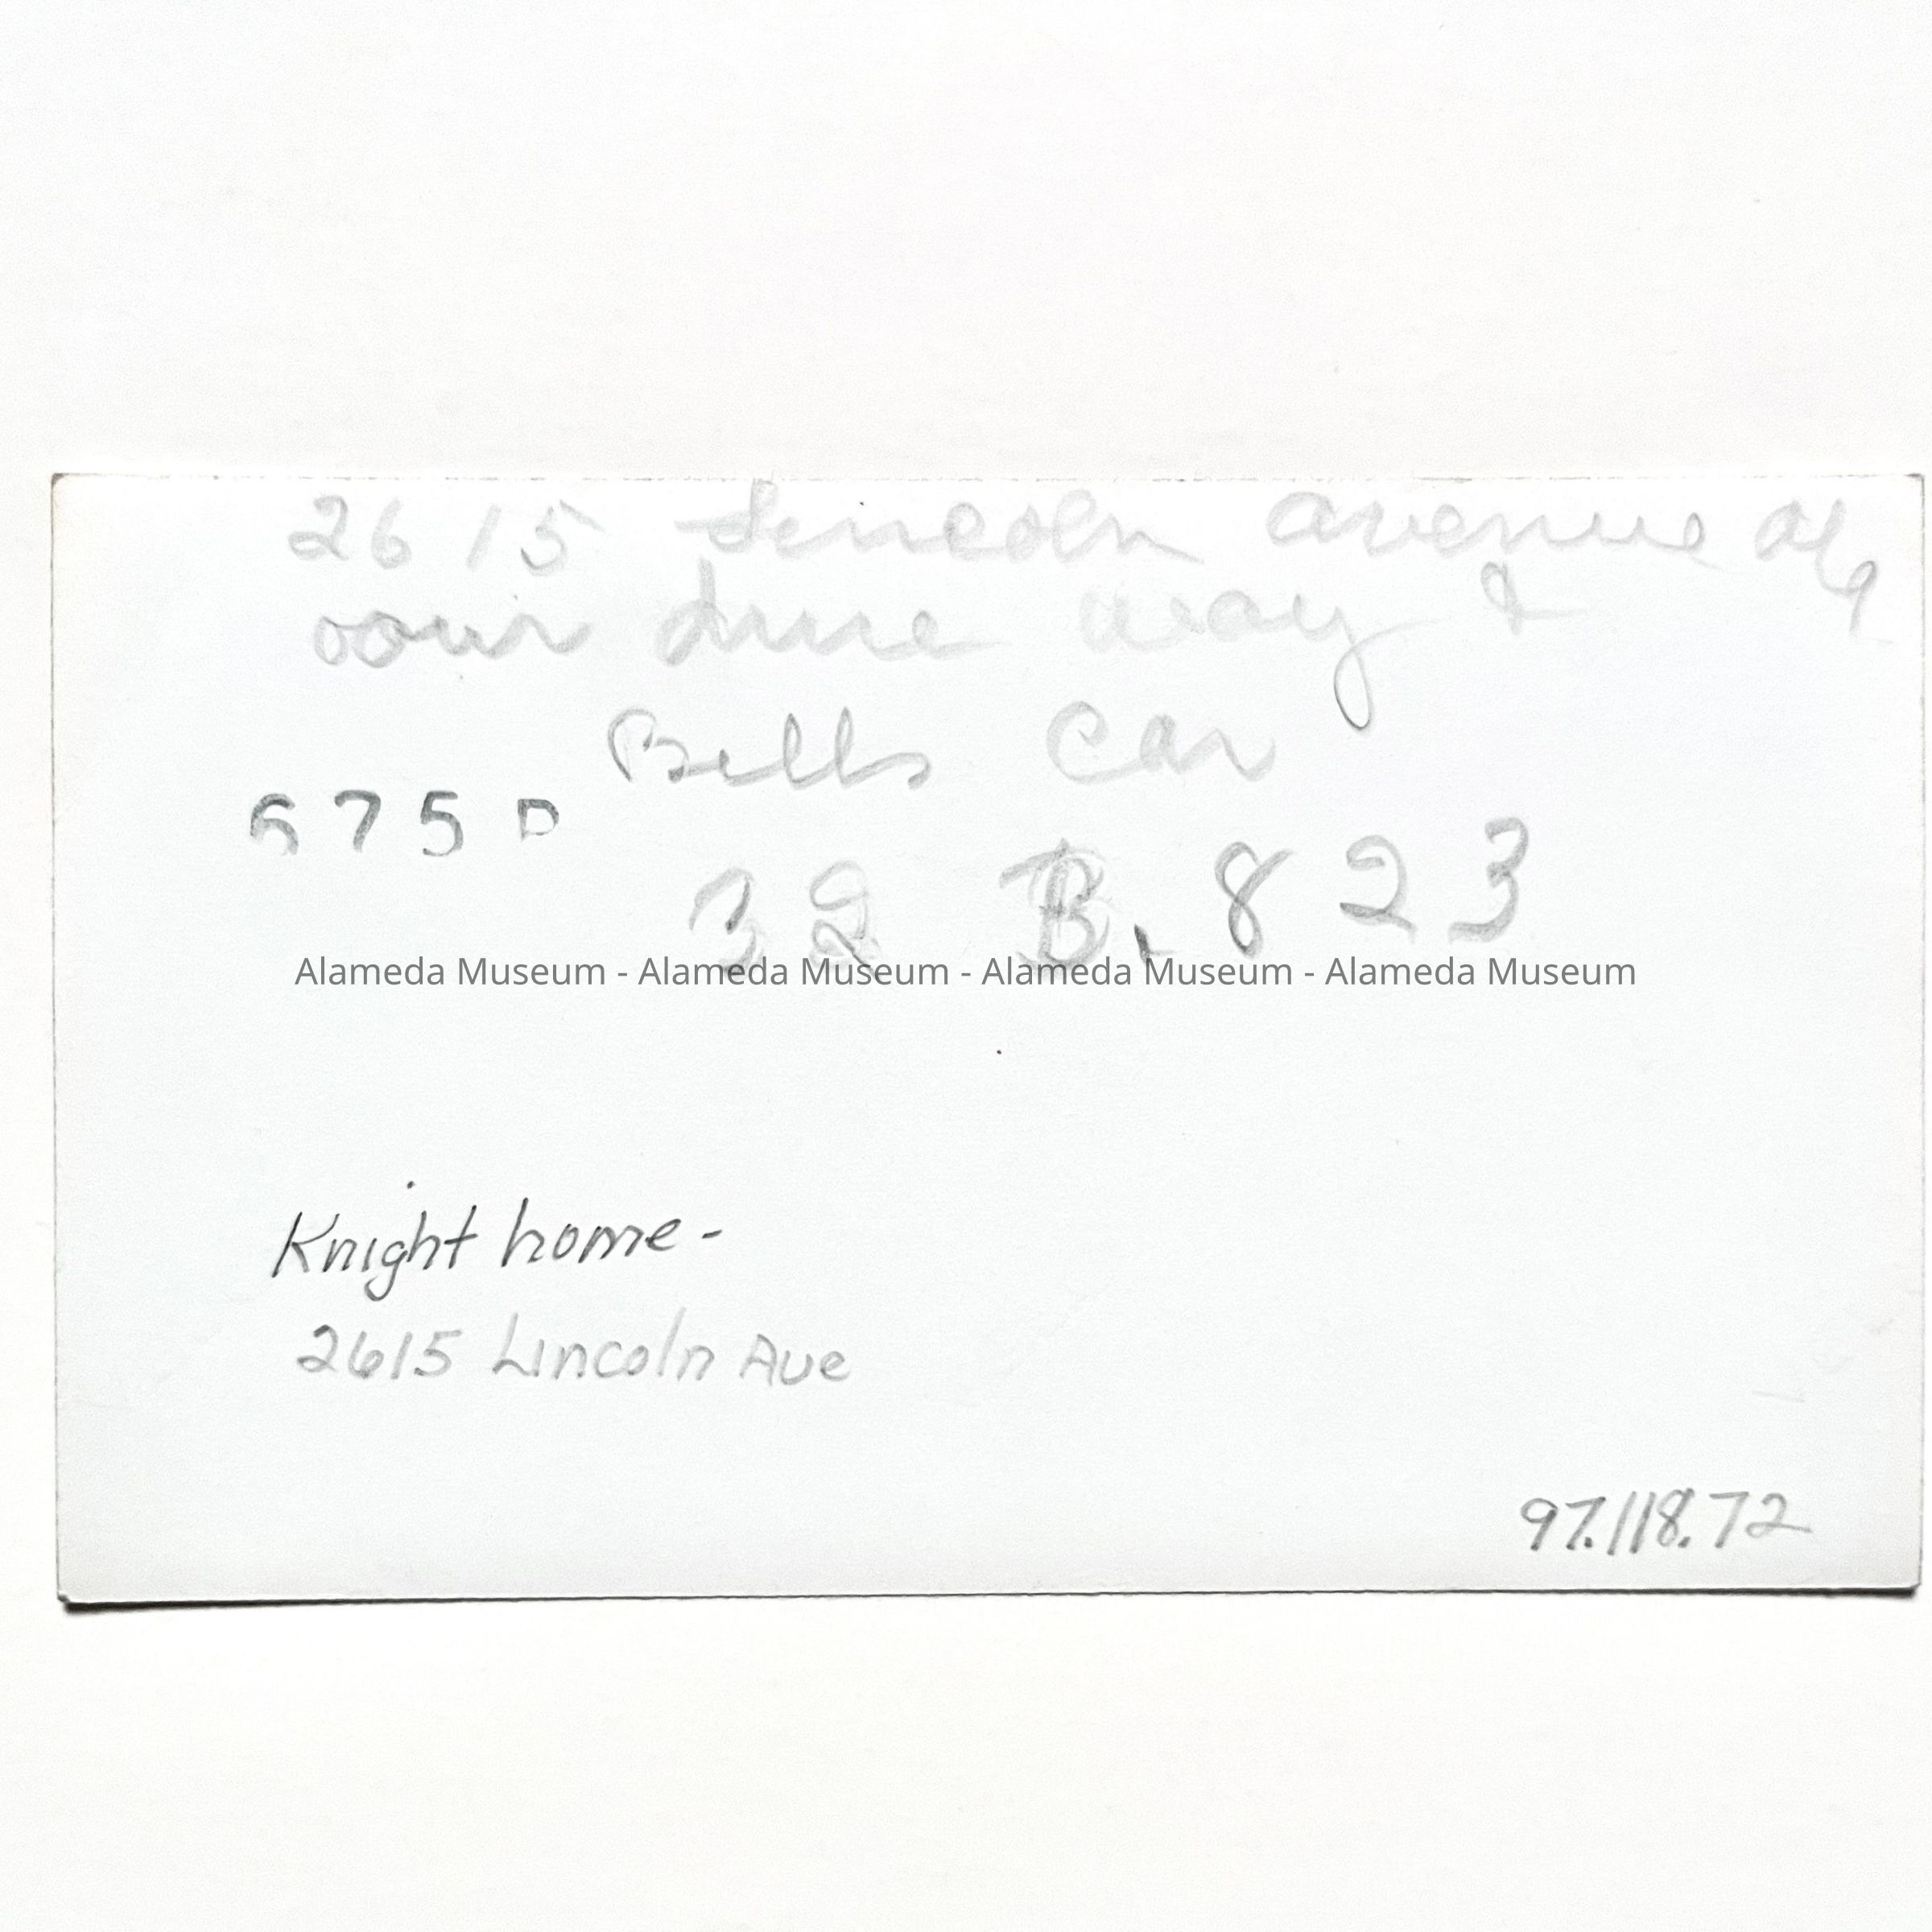 2615 Lincoln Avenue Ala
our drive way &
Bills Car
675 D
32 B. 823
Alameda Museum - Alameda Museum - Alameda Museum - Alameda Museum
Knight home -
2615 Lincoln Ave
97.118.72